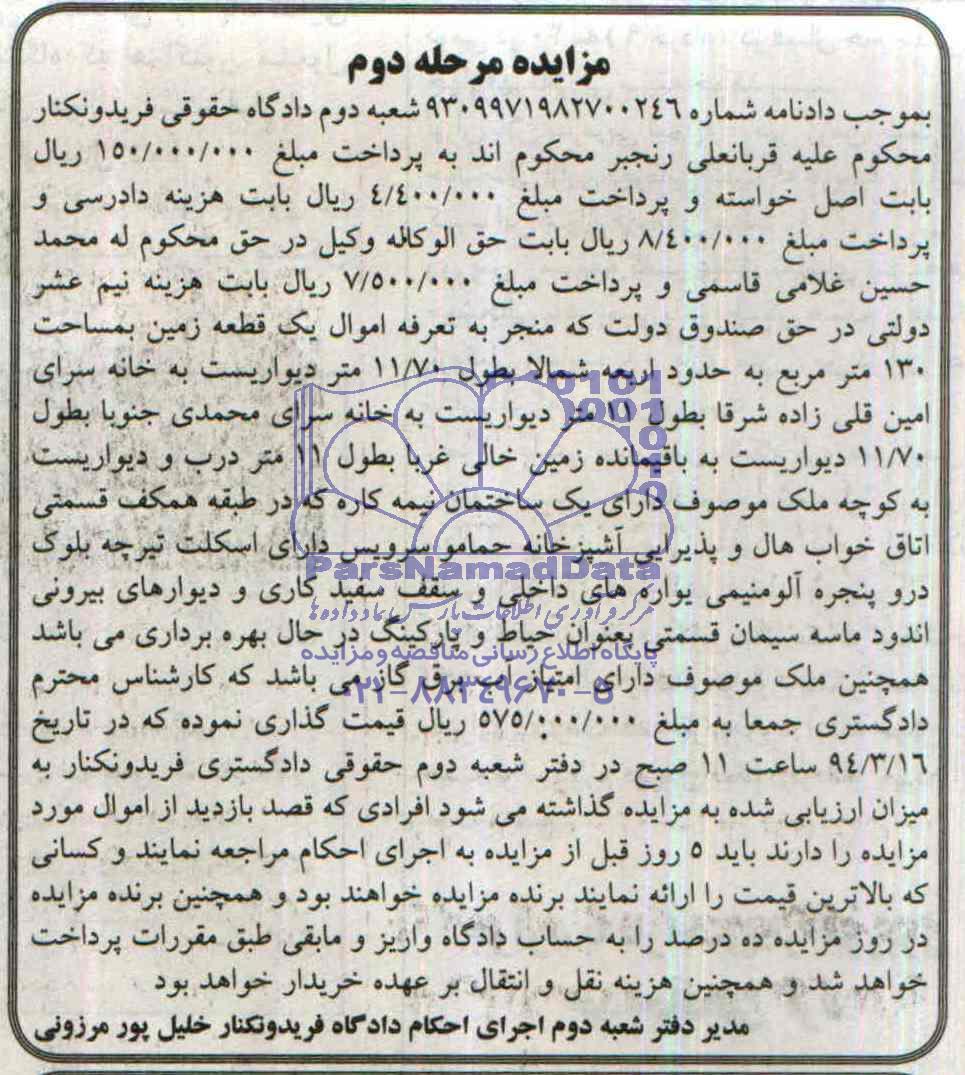 مزایده مرحله دوم
بموجب دادنامه شماره ۹۳۰۹۹۷۱۹۸۲۷۰۰۲۴۶ شعبه دوم دادگاه حقوقی فریدونکنار
محکوم علیه قربانعلی رنجبر محکوم اند به پرداخت مبلغ ۱۵۰/۰۰۰/۰۰۰ ریال
بابت اصل خواسته و پرداخت مبلغ ۴/۴۰۰/۰۰۰ ریال بابت هزینه دادرسی و
پرداخت مبلغ ۸/۴۰۰/۰۰۰ ریال بابت حق الوکاله وکیل در حق محکوم له محمد
حسین غلامی قاسمی و پرداخت مبلغ ۷/۵۰۰/۰۰۰ ریال بابت هزینه نیم عشر
دولتی در حق صندوق دولت که منجر به تعرفه اموال یک قطعه زمین بمساحت
۱۳۰ متر مربع به حدود اربعه شمالا بطول ۱۱/۷۰ متر دیواریست به خانه سرای
امین قلی زاده شرقا بطول ۱۱ متر دیواریست به خانه سرای محمدی جنوبا بطول
۱۱/۷۰ دیواریست به باقیمانده زمین خالی غربا بطول ۱۱ متر درب و دیواریست
به کوچه ملک موصوف دارای یک ساختمان نیمه کاره که در طبقه همکف قسمتی
اتاق خواب هال و پذیرایی آشپزخانه حمامو سرویس دارای اسکلت تیرچه بلوک
درو پنجره آلومنیمی یواره های داخلی و سقف سفید کاری و دیوارهای بیرونی
اندود ماسه سیمان قسمتی بعنوان حیاط و پارکینگ در حال بهره برداری می باشد
همچنین ملک موصوف دارای امتیاز آب برق گاز می باشد که کارشناس محترم
دادگستری جمعا به مبلغ ۵۷۵/۰۰۰/۰۰۰ ریال قیمت گذاری نموده که در تاریخ
۹۴/۳/۱۶ ساعت ۱۱ صبح در دفتر شعبه دوم حقوقی دادگستری فریدونکنار به
میزان ارزیابی شده به مزایده گذاشته می شود افرادی که قصد بازدید از اموال مورد
مزایده را دارند باید ۵ روز قبل از مزایده به اجرای احکام مراجعه نمایند و کسانی
که بالاترین قیمت را ارائه نمایند برنده مزایده خواهند بود و همچنین برنده مزایده
در روز مزایده ده درصد را به حساب دادگاه واریز و مابقی طبق مقررات پرداخت
خواهد شد و همچنین هزینه نقل و انتقال بر عهده خریدار خواهد بود
مدیر دفتر شعبه دوم اجرای احکام دادگاه فریدونکنار خلیل پور مرزونی
ParsNamadData
مرکز فرآوری اطلاعات پارس نماد داده ها
پایگاه اطلاع رسانی مناقصه و مزایده
۰۲۱-۸۸۳۴۹۶۷۰-۵